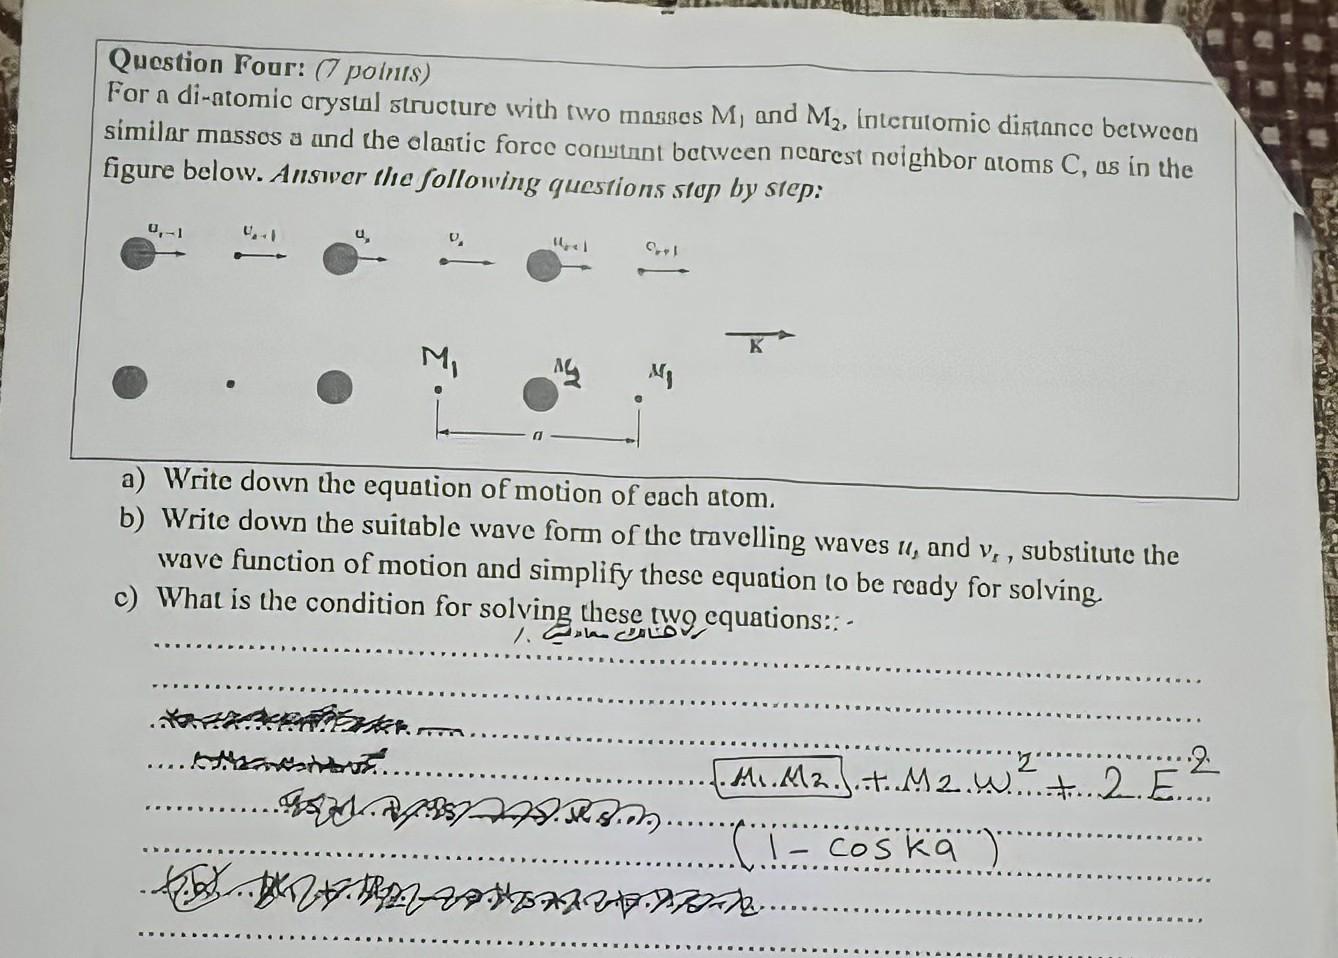 Question Four: (7 points)
For a di-atomic crystal structure with two masses M₁ and M₂, interatomic distance between
similar masses a and the elastic force constant between nearest neighbor atoms C, as in the
figure below. Answer the following questions step by step:
uₛ₋₁ vₛ₋₁ uₛ vₛ uₛ₊₁ vₛ₊₁
K
M₁ M₂ M₁
a
a) Write down the equation of motion of each atom.
b) Write down the suitable wave form of the travelling waves uₛ and vₛ , substitute the
wave function of motion and simplify these equation to be ready for solving.
c) What is the condition for solving these two equations:: -
M₁.M₂ + M₂.W² + 2 E²
(1 - cos ka)